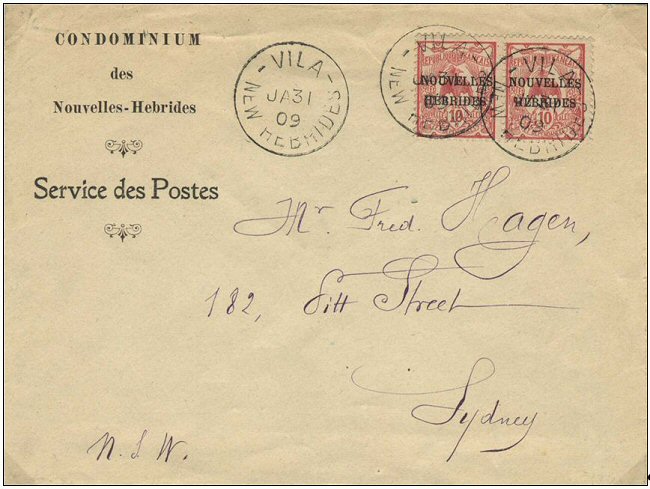 CONDOMINIUM
des
Nouvelles-Hebrides
Service des Postes
- VILA -
JA31
09
NEW HEBRIDES
- VILA -
NEW HEBRIDES
- VILA -
09
NEW HEBRIDES
NOUVELLES
HEBRIDES
10
NOUVELLES
HEBRIDES
10
Mr Fred. Hagen,
182, Pitt Street
Sydney
N.S.W.